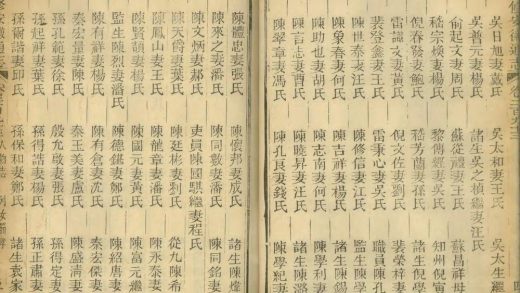 修安徽通志 卷三百九十三
吳日旭妻戴氏 吳太和妻王氏 吳太生繼
吳普元妻楊氏 諸生吳之楨繼妻汪氏
俞起文妻周氏 蘇從禮妻王氏 蘇昌祥母
嵇宗煥妻楊氏 黎傅經妻吳氏 知州倪甯
倪春發妻鮑氏 嵇芳蘭妻孫氏 諸生倪學
雷誠文妻黃氏 倪文佐妻劉氏 裴榮梓妻
裴登鰲妻王氏 雷秉心妻吳氏 職員陳孔
陳世泰妻汪氏 陳修信妻江氏 監生陳
陳象春妻何氏 陳吉祥妻楊氏 諸生陳鑑
陳助也妻胡氏 陳志南妻何氏 陳學利妻
陳言志妻酉氏 陳曉昇妻汪氏 諸生陳潞
陳翠章妻馮氏 陳孔良妻錢氏 陳學紀妻
陳體忠妻張氏 陳懷邦妻成氏 諸生陳燈
陳來之妻潘氏 陳同妻潘氏 諸生陳
陳文炳妻郝氏 吏員陳國騏繼妻程氏 陳同銘妻
陳天爵妻葉氏 陳廷彬妻劉氏 從九陳希
陳鳳山妻王氏 陳能章妻潘氏 陳永泰妻
陳賢謨妻楊氏 陳國元妻黃氏 陳富元繼
監生陳烈妻潘氏 陳德銘妻鄭氏 陳紹唐妻
陳有祥妻楊氏 陳有倉妻沈氏 秦宏傑妻
秦宏量妻陳氏 秦玉美妻盧氏 陳盛清妻
孫孔範妻徐氏 殷允敬妻張氏 孫得定妻
孫起祥妻葉氏 孫得誥妻楊氏 孫正肅妻
孫爾誥妻邱氏 孫保和妻鄭氏 諸生袁家